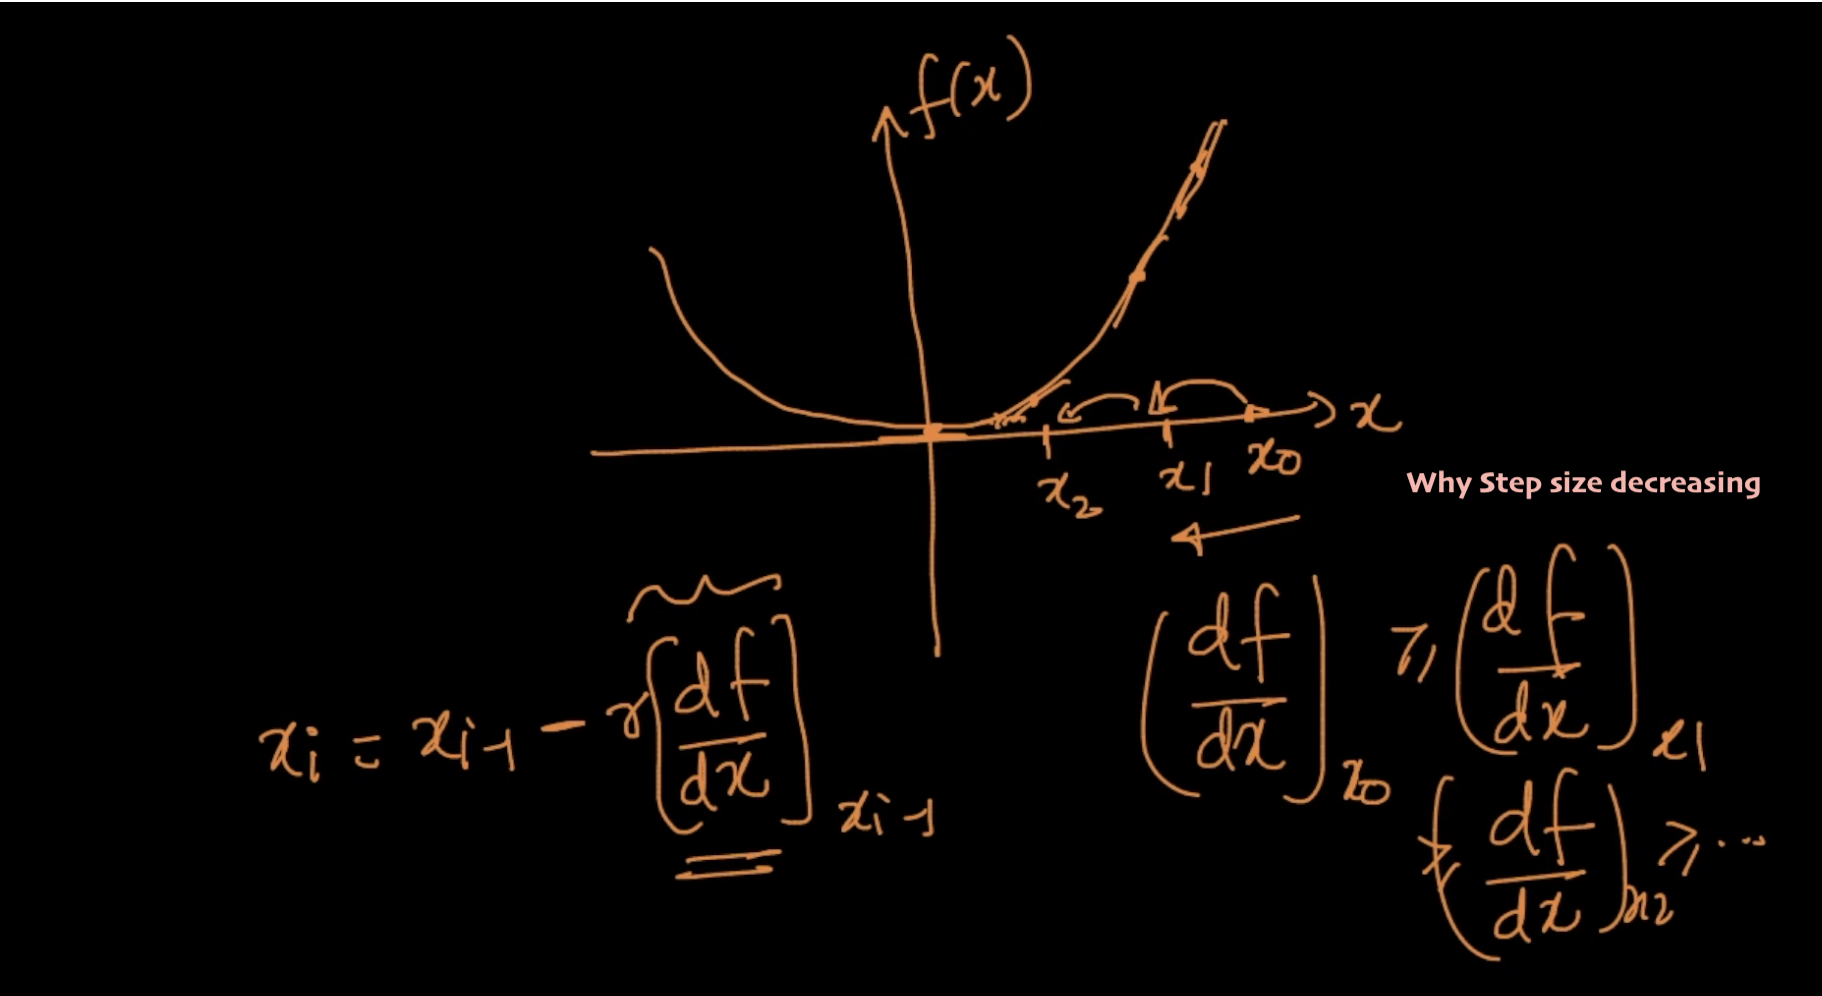 f(x)
x
x₂ x₁ x₀
Why Step size decreasing
xᵢ = xᵢ₋₁ - r[df/dx]xᵢ₋₁
(df/dx)x₀ ≥ (df/dx)x₁
≥ (df/dx)x₂ ≥ ...